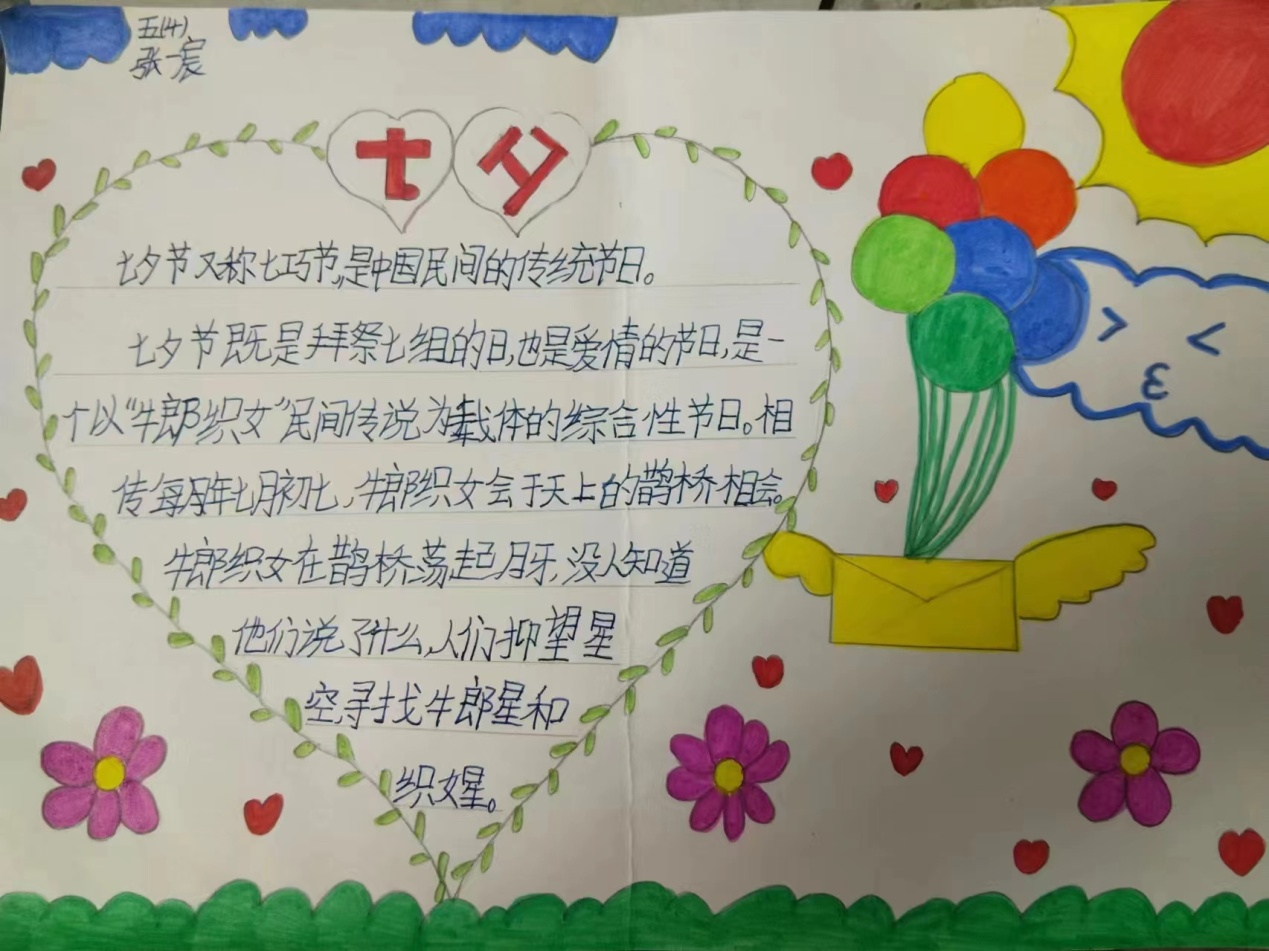 五(4)
张一宸
七夕
七夕节又称七巧节,是中国民间的传统节日。
七夕节既是拜祭七组的日,也是爱情的节日,是一
个以“牛郎织女”民间传说为载体的综合性节日。相
传每年七月初七,牛郎织女会于天上的鹊桥相会。
牛郎织女在鹊桥荡起月牙,没人知道
他们说了什么,人们抑望星
空,寻找牛郎星和
织女星。